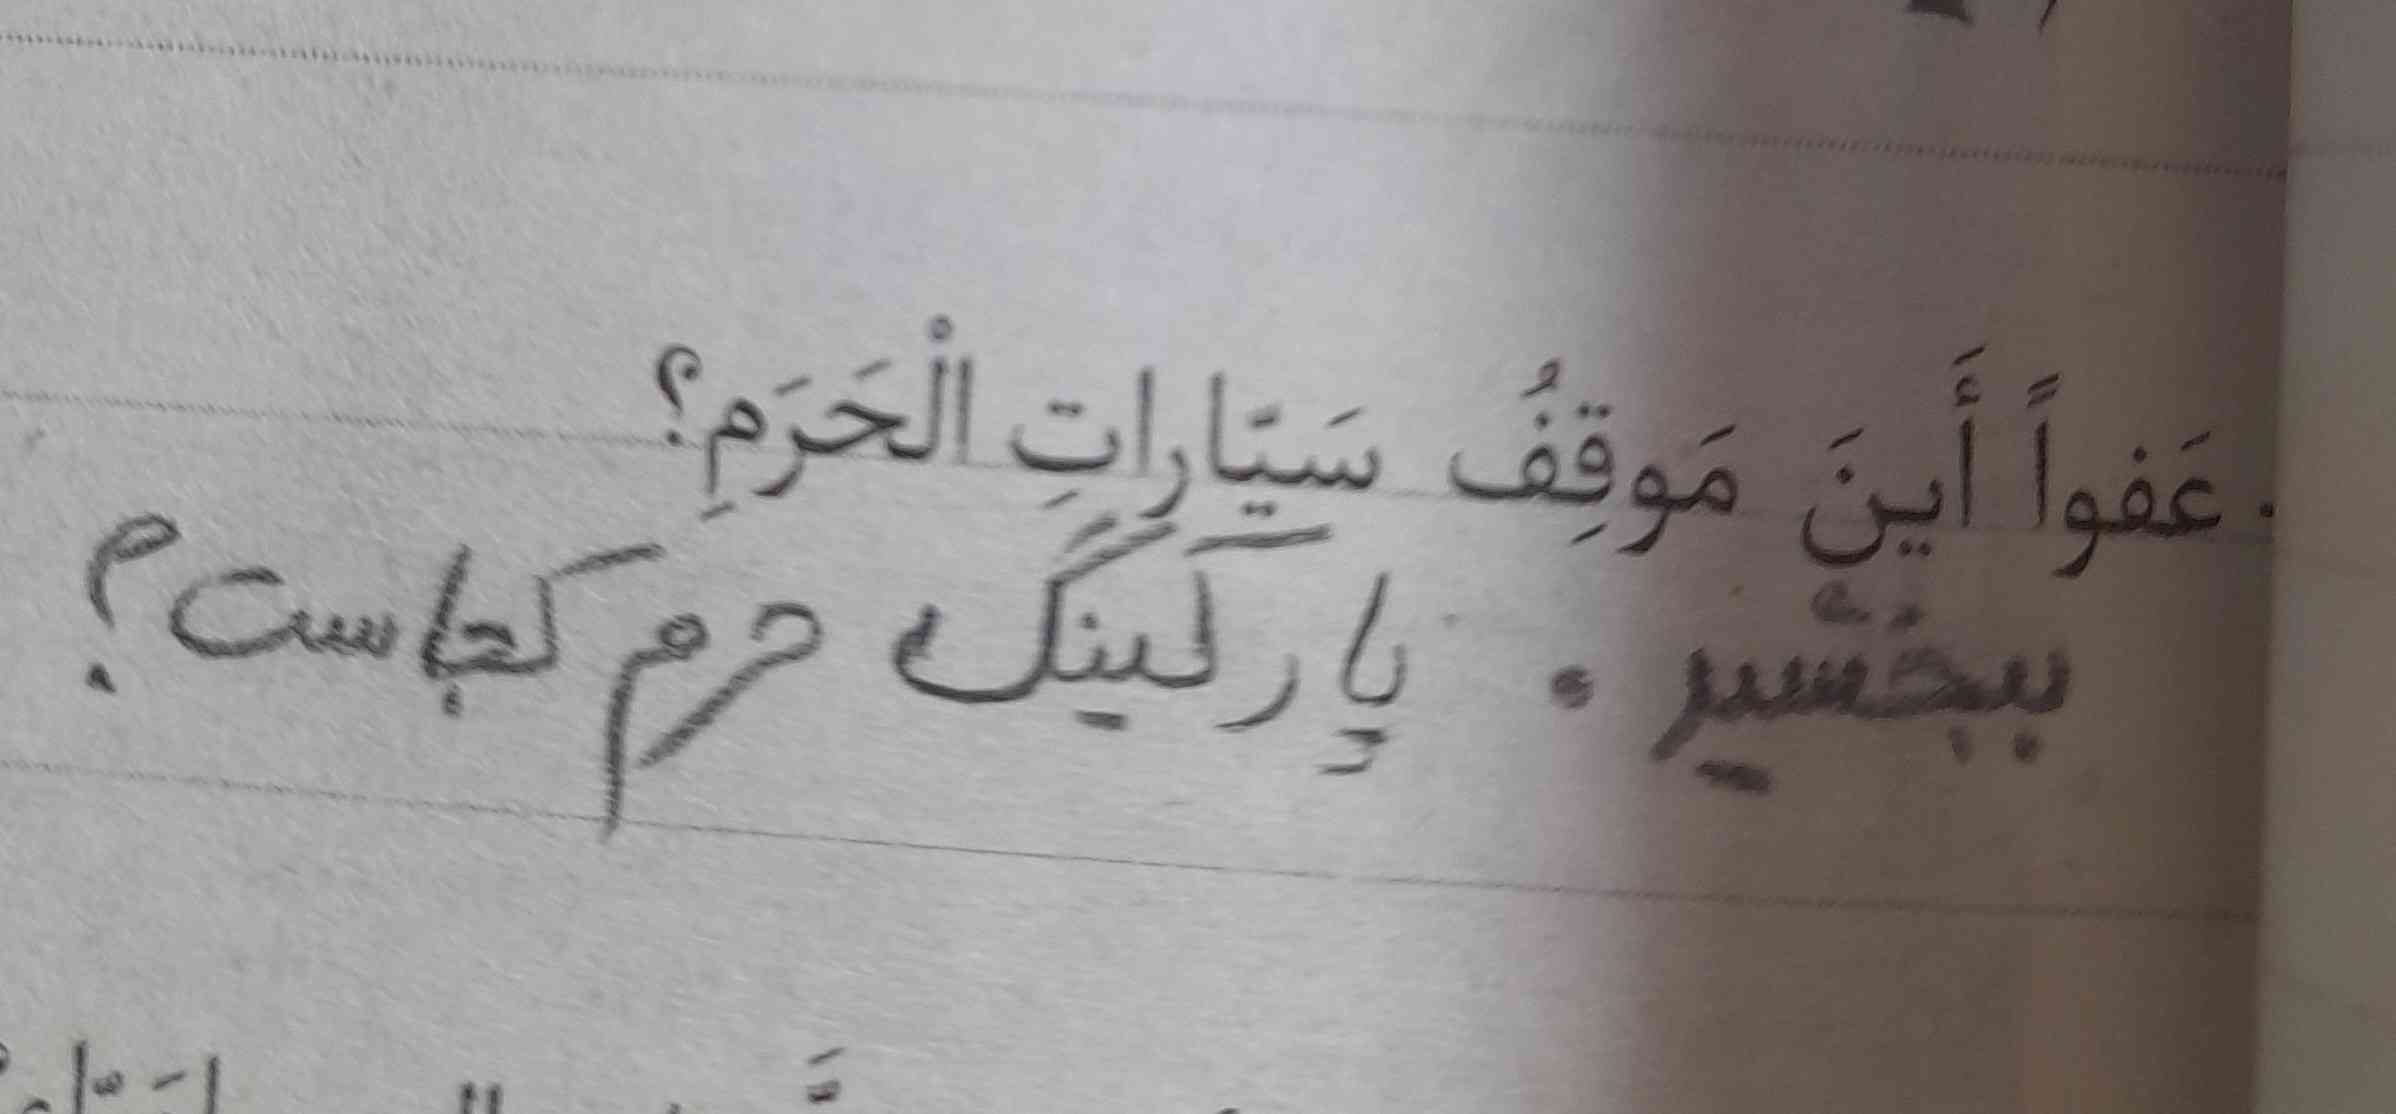 . عَفواً أَينَ مَوقِفُ سَيّاراتِ الْحَرَمِ؟
ببخشیر . پارکینگ حرم کجاست؟